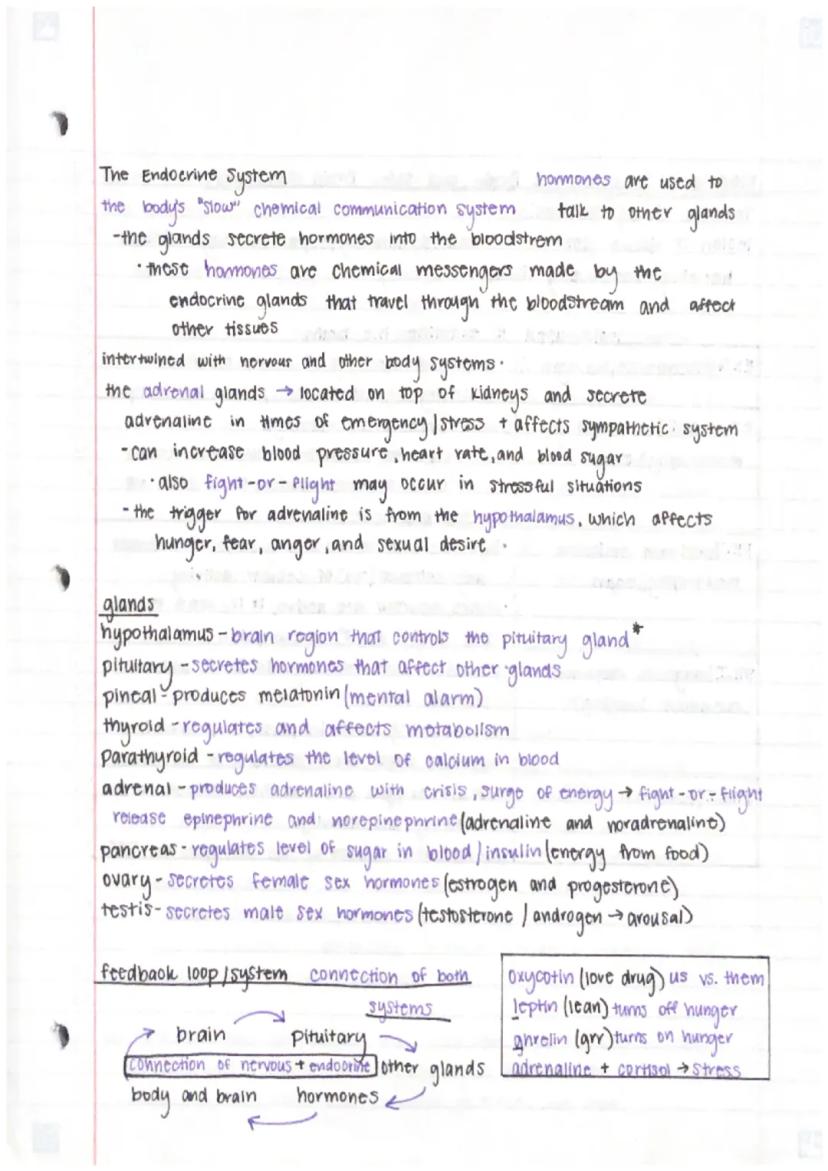 The Endocrine System
hormones are used to
the body's "slow" chemical communication system
talk to other glands
-the glands secrete hormones into the bloodstrem
·these hormones are chemical messengers made by the
endocrine glands that travel through the bloodstream and affect
other tissues
intertwined with nervous and other body systems.
the adrenal glands → located on top of kidneys and secrete
adrenaline in times of emergency/stress + affects sympathetic system
-can increase blood pressure, heart rate, and blood sugar
·also fight-or-flight may occur in stressful situations
-the trigger for adrenaline is from the hypothalamus, which affects
hunger, fear, anger, and sexual desire.
glands
hypothalamus - brain region that controls the pituitary gland*
pituitary - secretes hormones that affect other glands
pineal - produces melatonin (mental alarm)
thyroid - regulates and affects metabolism
parathyroid - regulates the level of calcium in blood
adrenal - produces adrenaline with crisis, surge of energy → fight-or-flight
release epinephrine and norepinephrine (adrenaline and noradrenaline)
pancreas - regulates level of sugar in blood/insulin (energy from food)
ovary - secretes female sex hormones (estrogen and progesterone)
testis - secretes male sex hormones (testosterone / androgen → arousal)
feedback loop/system connection of both
systems
brain → pituitary
connection of nervous + endocrine other glands
body and brain hormones
oxycotin (love drug) us vs. them
leptin (lean) turns off hunger
ghrelin (grr) turns on hunger
adrenaline + cortisol → stress